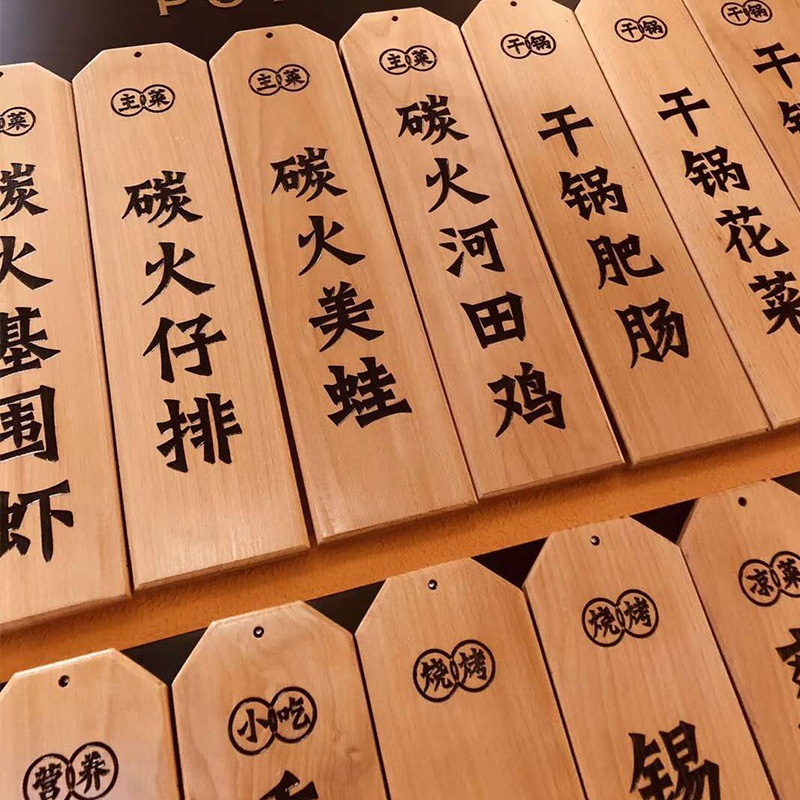 主菜
碳火基围虾
主菜
碳火仔排
主菜
碳火美蛙
主菜
碳火河田鸡
干锅
干锅肥肠
干锅
干锅花菜
干锅
干锅
营养
小吃
烧烤
烧烤
锡
凉菜